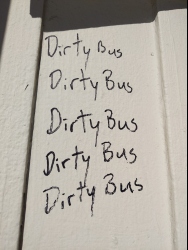 Dirty Bus
Dirty Bus
Dirty Bus
Dirty Bus
Dirty Bus